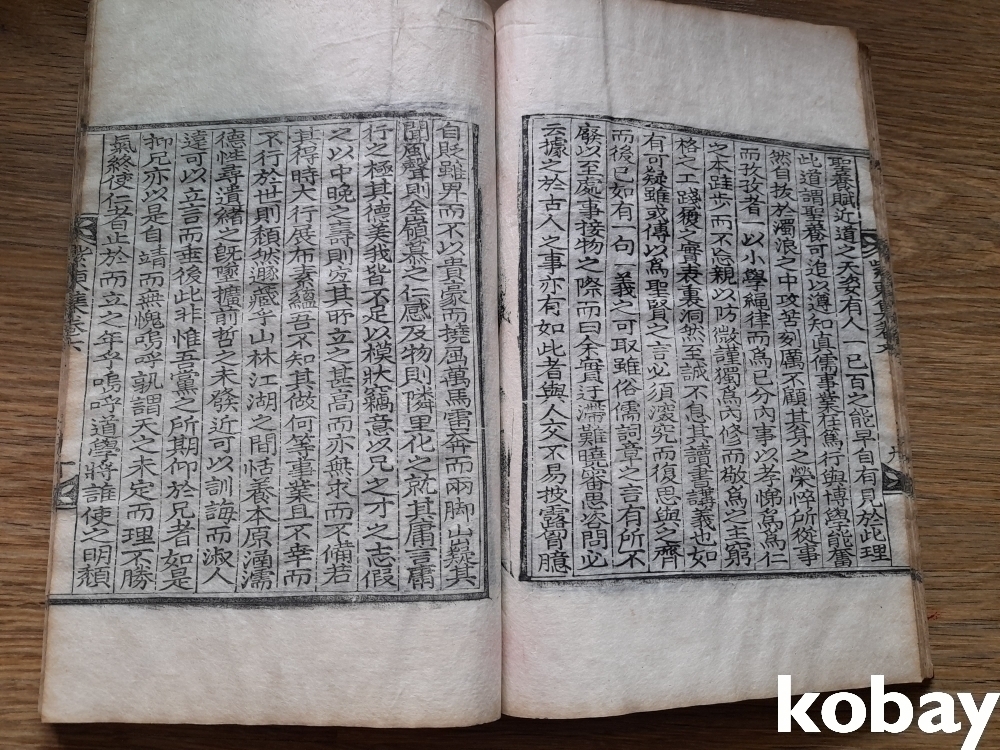 聖養賦近道之天姿有人一己百之能早自有見於此理
此道謂聖養可追以遵知眞儒事業在篤行與博學能奮
然自拔於濁浪之中攻苦刻厲不顧其身之榮悴所從事
而孜孜者以小學編律而爲己分內事以孝悌爲爲仁
之本跬步而不忘親以防微謹獨爲內修而敬爲之主窮
格之工踐履之實表裏洞然至誠不息其讀書講義也如
有可疑雖或傳以爲聖賢之言必須深究而復思與之齊
而後已如有一句一義之可取雖俗儒詞章之言有所不
廢以至處事接物之際而曰余實迂滯難曉審思咨問必
云據之於古人之事亦有如此者與人交不易披露胷臆
自貶雖男而不以貴豪而撓屈萬馬雷奔而兩脚山嶷其
聞風聲則全嶺慕之仁感及物則隣里化之就其庸言庸
行之極其德美我皆不足以模狀竊意以兄之才之志假
之以中晩之壽則穷其所立之甚高而亦無求而不備若
其得時大行展布素蘊吾不知其做何等事業且不幸而
不行於世則頹然遯藏乎山林江湖之間恬養本原涵濡
德性尋遺緖之旣墜擴前哲之未發近可以訓誨而淑人
遠可以立言而垂後此非惟吾黨之所期仰於兄者如是
抑兄亦以是自靖而無愧嗚呼孰謂天之未定而理不勝
氣終使仁者止於而立之年乎嗚呼道學將誰使之明頹
kobay